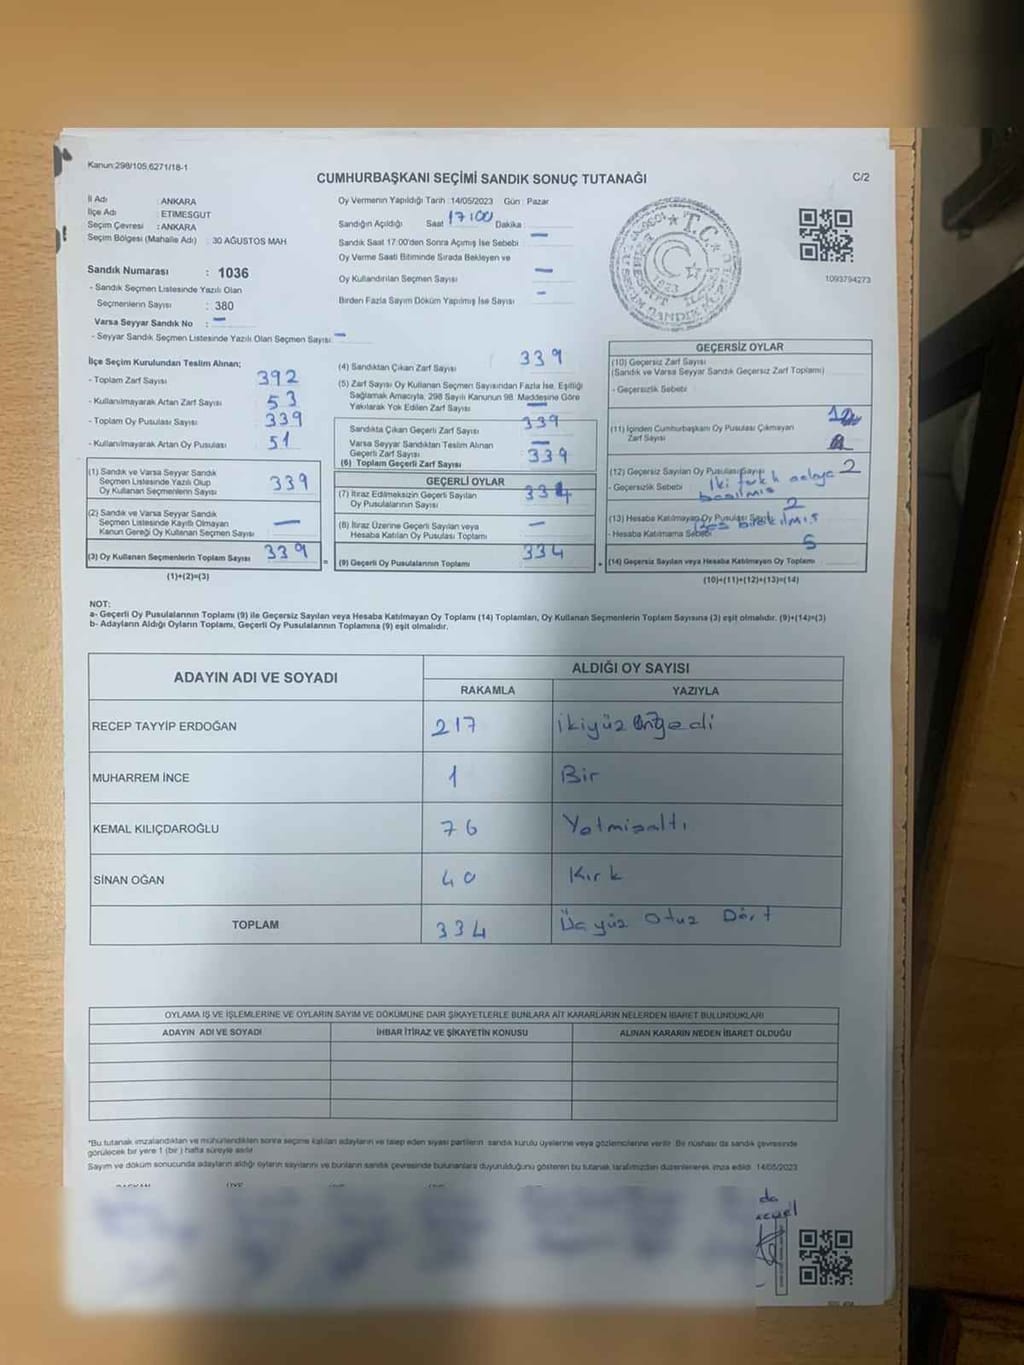 Kanun:298/105,6271/18-1
CUMHURBAŞKANI SEÇİMİ SANDIK SONUÇ TUTANAĞI
C/2
İl Adı : ANKARA
İlçe Adı : ETİMESGUT
Seçim Çevresi : ANKARA
Seçim Bölgesi (Mahalle Adı) : 30 AĞUSTOS MAH
Sandık Numarası : 1036
- Sandık Seçmen Listesinde Yazılı Olan
Seçmenlerin Sayısı : 380
Varsa Seyyar Sandık No : -
- Seyyar Sandık Seçmen Listesinde Yazılı Olan Seçmen Sayısı: -
Oy Vermenin Yapıldığı Tarih :14/05/2023 Gün : Pazar
Sandığın Açıldığı Saat 17:00 Dakika
Sandık Saat 17.00'den Sonra Açılmış İse Sebebi -
Oy Verme Saati Bitiminde Sırada Bekleyen ve
Oy Kullandırılan Seçmen Sayısı -
Birden Fazla Sayım Döküm Yapılmış İse Sayısı -
T.C.
1093794273
İlçe Seçim Kurulundan Teslim Alınan;
- Toplam Zarf Sayısı 392
- Kullanılmayarak Artan Zarf Sayısı 53
- Toplam Oy Pusulası Sayısı 339
- Kullanılmayarak Artan Oy Pusulası 51
(1) Sandık ve Varsa Seyyar Sandık
Seçmen Listesinde Yazılı Olup
Oy Kullanan Seçmenlerin Sayısı 339
(2) Sandık ve Varsa Seyyar Sandık
Seçmen Listesinde Kayıtlı Olmayan
Kanun Gereği Oy Kullanan Seçmen Sayısı -
(3) Oy Kullanan Seçmenlerin Toplam Sayısı 339
(1)+(2)=(3)
(4) Sandıktan Çıkan Zarf Sayısı 339
(5) Zarf Sayısı Oy Kullanan Seçmen Sayısından Fazla İse, Eşitliği
Sağlamak Amacıyla, 298 Sayılı Kanunun 98. Maddesine Göre
Yakılarak Yok Edilen Zarf Sayısı -
Sandıkta Çıkan Geçerli Zarf Sayısı 339
Varsa Seyyar Sandıktan Teslim Alınan
Geçerli Zarf Sayısı -
(6) Toplam Geçerli Zarf Sayısı 339
GEÇERLİ OYLAR
(7) İtiraz Edilmeksizin Geçerli Sayılan
Oy Pusulalarının Sayısı 334
(8) İtiraz Üzerine Geçerli Sayılan veya
Hesaba Katılan Oy Pusulası Toplamı -
(9) Geçerli Oy Pusulalarının Toplamı 334
GEÇERSİZ OYLAR
(10) Geçersiz Zarf Sayısı
(Sandık ve Varsa Seyyar Sandık Geçersiz Zarf Toplamı)
- Geçersizlik Sebebi
(11) İçinden Cumhurbaşkanı Oy Pusulası Çıkmayan
Zarf Sayısı
(12) Geçersiz Sayılan Oy Pusulası Sayısı 2
- Geçersizlik Sebebi İki farklı adaya
basılmış
2
(13) Hesaba Katılmayan Oy Pusulası Sayısı
- Hesaba Katılmama Sebebi Boş bırakılmış
5
(14) Geçersiz Sayılan veya Hesaba Katılmayan Oy Toplamı
(10)+(11)+(12)+(13)=(14)
NOT:
a- Geçerli Oy Pusulalarının Toplamı (9) ile Geçersiz Sayılan veya Hesaba Katılmayan Oy Toplamı (14) Toplamları, Oy Kullanan Seçmenlerin Toplam Sayısına (3) eşit olmalıdır. (9)+(14)=(3)
b- Adayların Aldığı Oyların Toplamı, Geçerli Oy Pusulalarının Toplamına (9) eşit olmalıdır.
ADAYIN ADI VE SOYADI
ALDIĞI OY SAYISI
RAKAMLA YAZIYLA
RECEP TAYYİP ERDOĞAN 217 ikiyüz onyedi
MUHARREM İNCE 1 Bir
KEMAL KILIÇDAROĞLU 76 Yetmişaltı
SİNAN OĞAN 40 Kırk
TOPLAM 334 Üçyüz Otuz Dört
OYLAMA İŞ VE İŞLEMLERİNE VE OYLARIN SAYIM VE DÖKÜMÜNE DAİR ŞİKAYETLERLE BUNLARA AİT KARARLARIN NELERDEN İBARET BULUNDUKLARI
ADAYIN ADI VE SOYADI İHBAR İTİRAZ VE ŞİKAYETİN KONUSU ALINAN KARARIN NEDEN İBARET OLDUĞU
*Bu tutanak imzalandıktan ve mühürlendikten sonra seçime katılan adayların ve talep eden siyasi partilerin sandık kurulu üyelerine veya gözlemcilerine verilir. Bir nüshası da sandık çevresinde
görülecek bir yere 1 (bir) hafta süreyle asılır
Sayım ve döküm sonucunda adayların aldığı oyların sayılarını ve bunların sandık çevresinde bulunanlara duyurulduğunu gösteren bu tutanak tarafımızdan düzenlenerek imza edildi. 14/05/2023